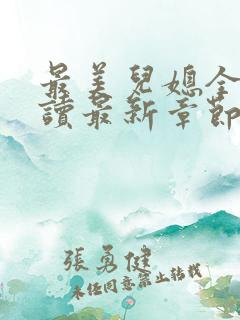 最美兒媳全
讀最新章節
張勇健
未经同意禁止转载